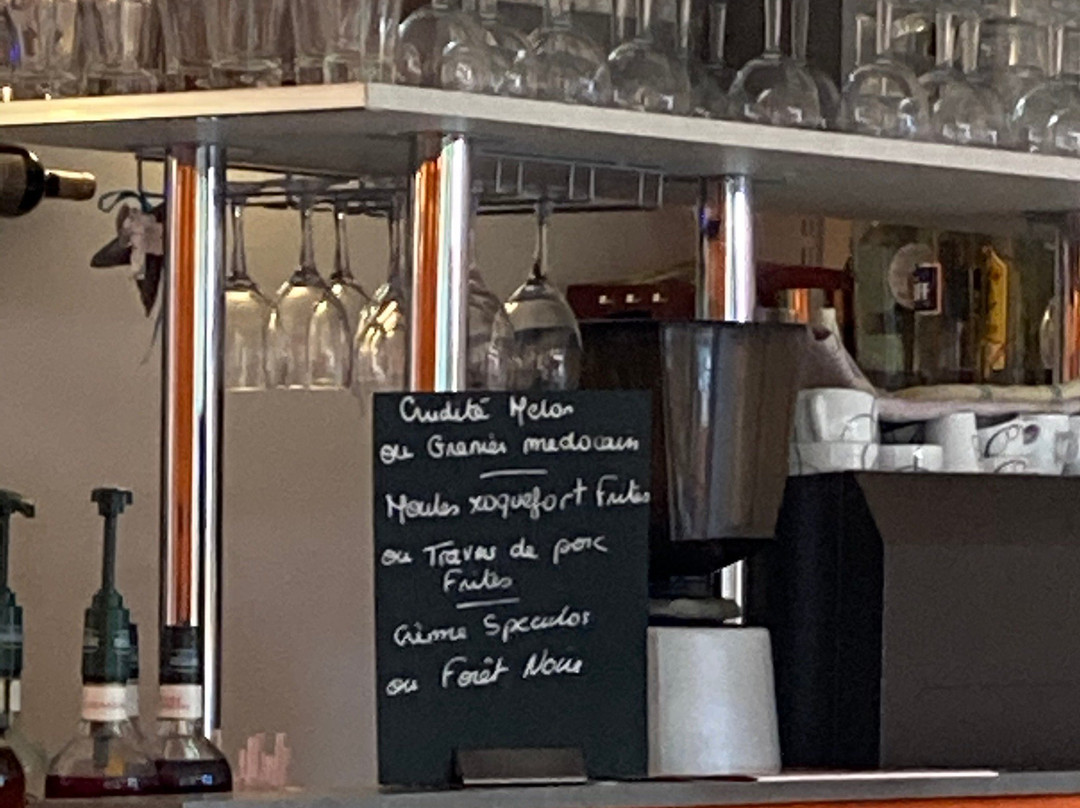 Crudité Melon
ou Grenier medocain
Moules roquefort Frites
ou Travers de porc
Frites
Crème Speculos
ou Forêt Noire